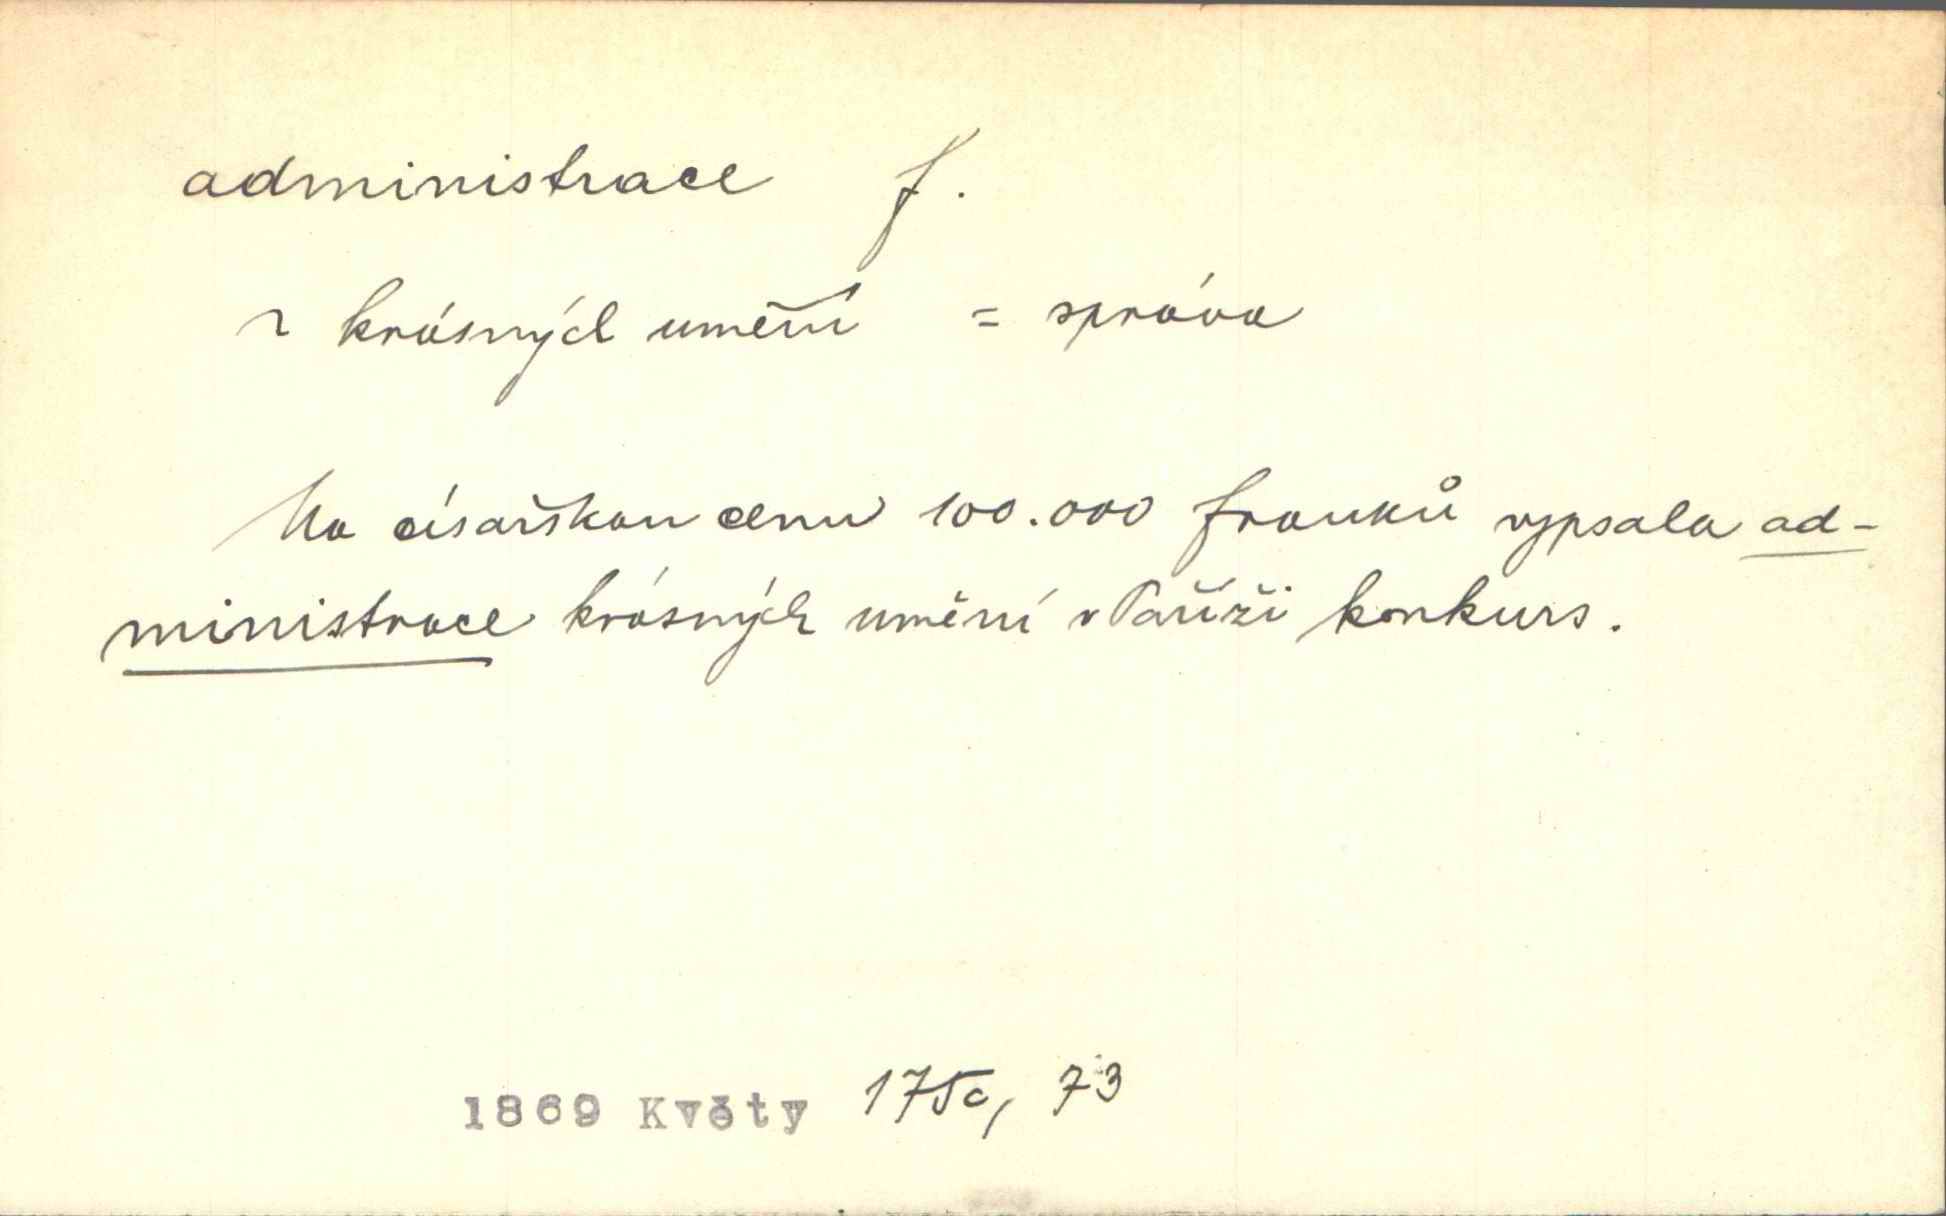 administrace f.
~ krásných umění = správa
Na císařskou cenu 100.000 franků vypsala ad-
ministrace krásných umění v Paříži konkurs.
1869 Květy 175c, 73